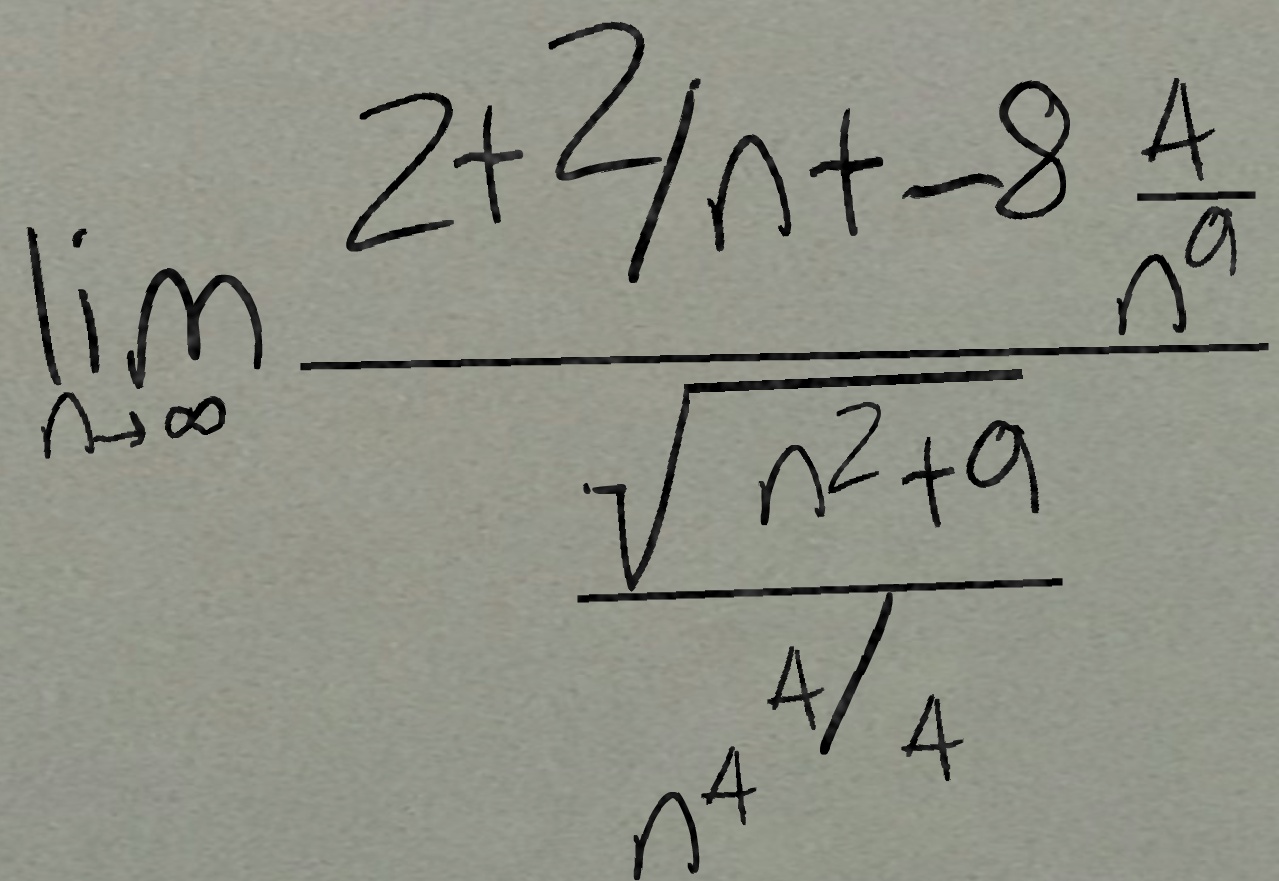 \lim_{n \to \infty} \frac{2+2/n+-8\frac{4}{n^9}}{\frac{\sqrt{n^2+9}}{n^{4^{4/4}}}}